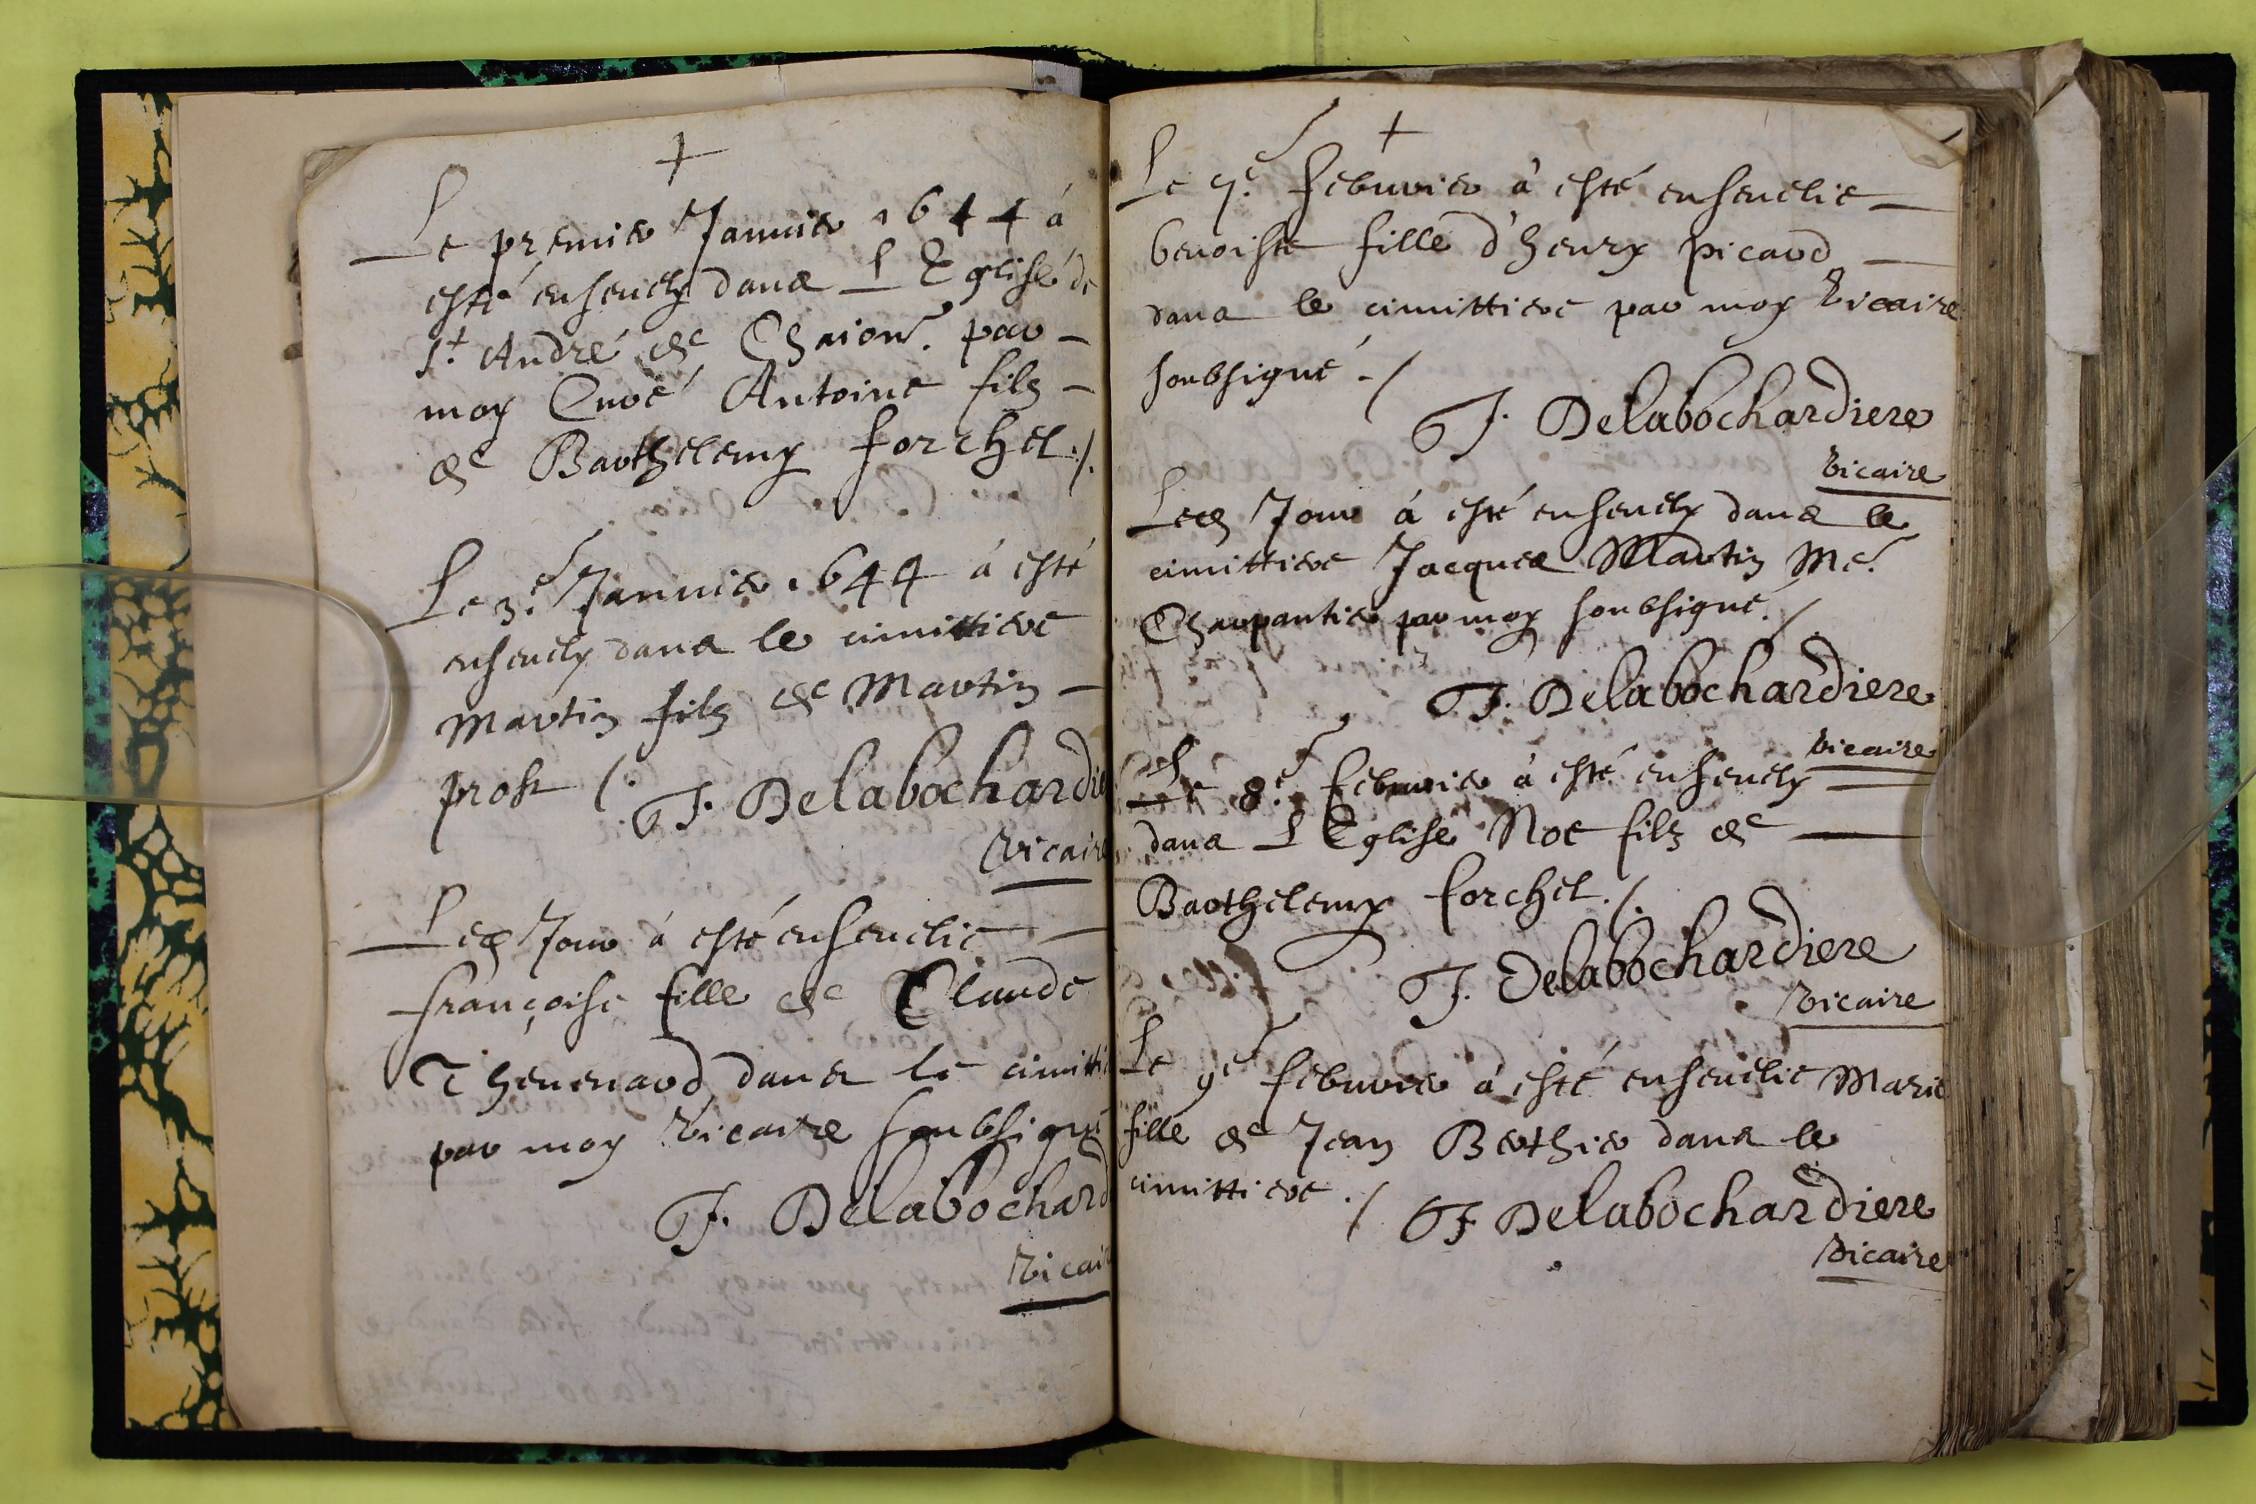 +
Le premier Januier 1644 á
esté enseuely dans L Eglise de
St. André de Chaion. par
moy Curé Antoine filz
de Barthelemy forchet ./.
Le 3e. Januier 1644 á esté
enseuely dans le cimittiere
Martin filz de Martin
prost (.
F. Delabochardie
Vicaire
Led Jour á esté enseuelie
françoise fille de Claude
Theuenard dans le cimitti
par moy Vicaire soubsigné
F. Delabochard
Vicair
+
Le 7e. februrier á esté enseuelie
benoiste fille d'henry picard
dans le cimittiere par moy Vicaire
soubsigné ./
F. Delabochardiere
Vicaire
Led Jour á esté enseuely dans le
cimittiere Jacques Martin Me.
Charpantier par moy soubsigné ./
F. Delabochardiere
Vicaire
Le 8e. februrier á esté enseuely
dans L Eglise Noe filz de
Barthelemy forchet ./.
F. Delabochardiere
Vicaire
Le 9e februrier á esté enseuelie Marie
fille de Jean Berthier dans le
cimittiere ./
F Delabochardiere
Vicaire